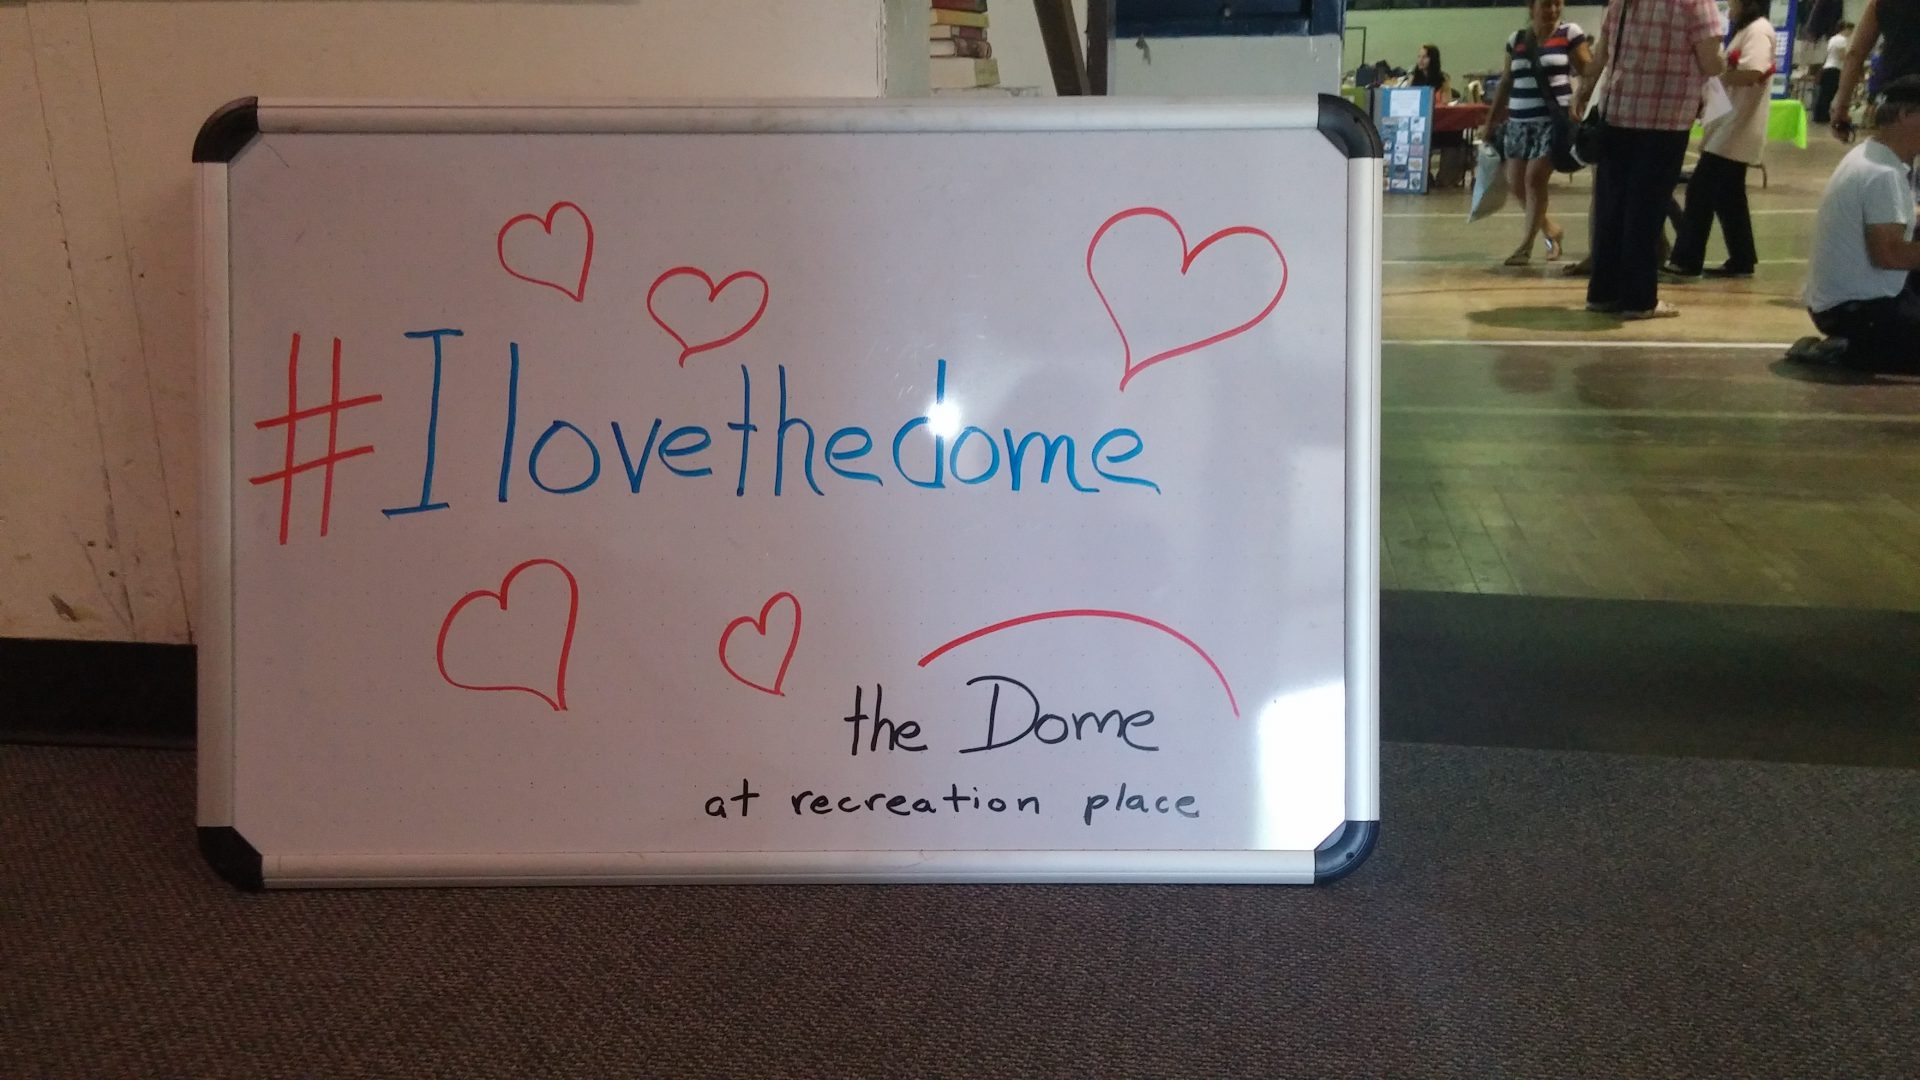 #Ilovethedome
the Dome
at recreation place